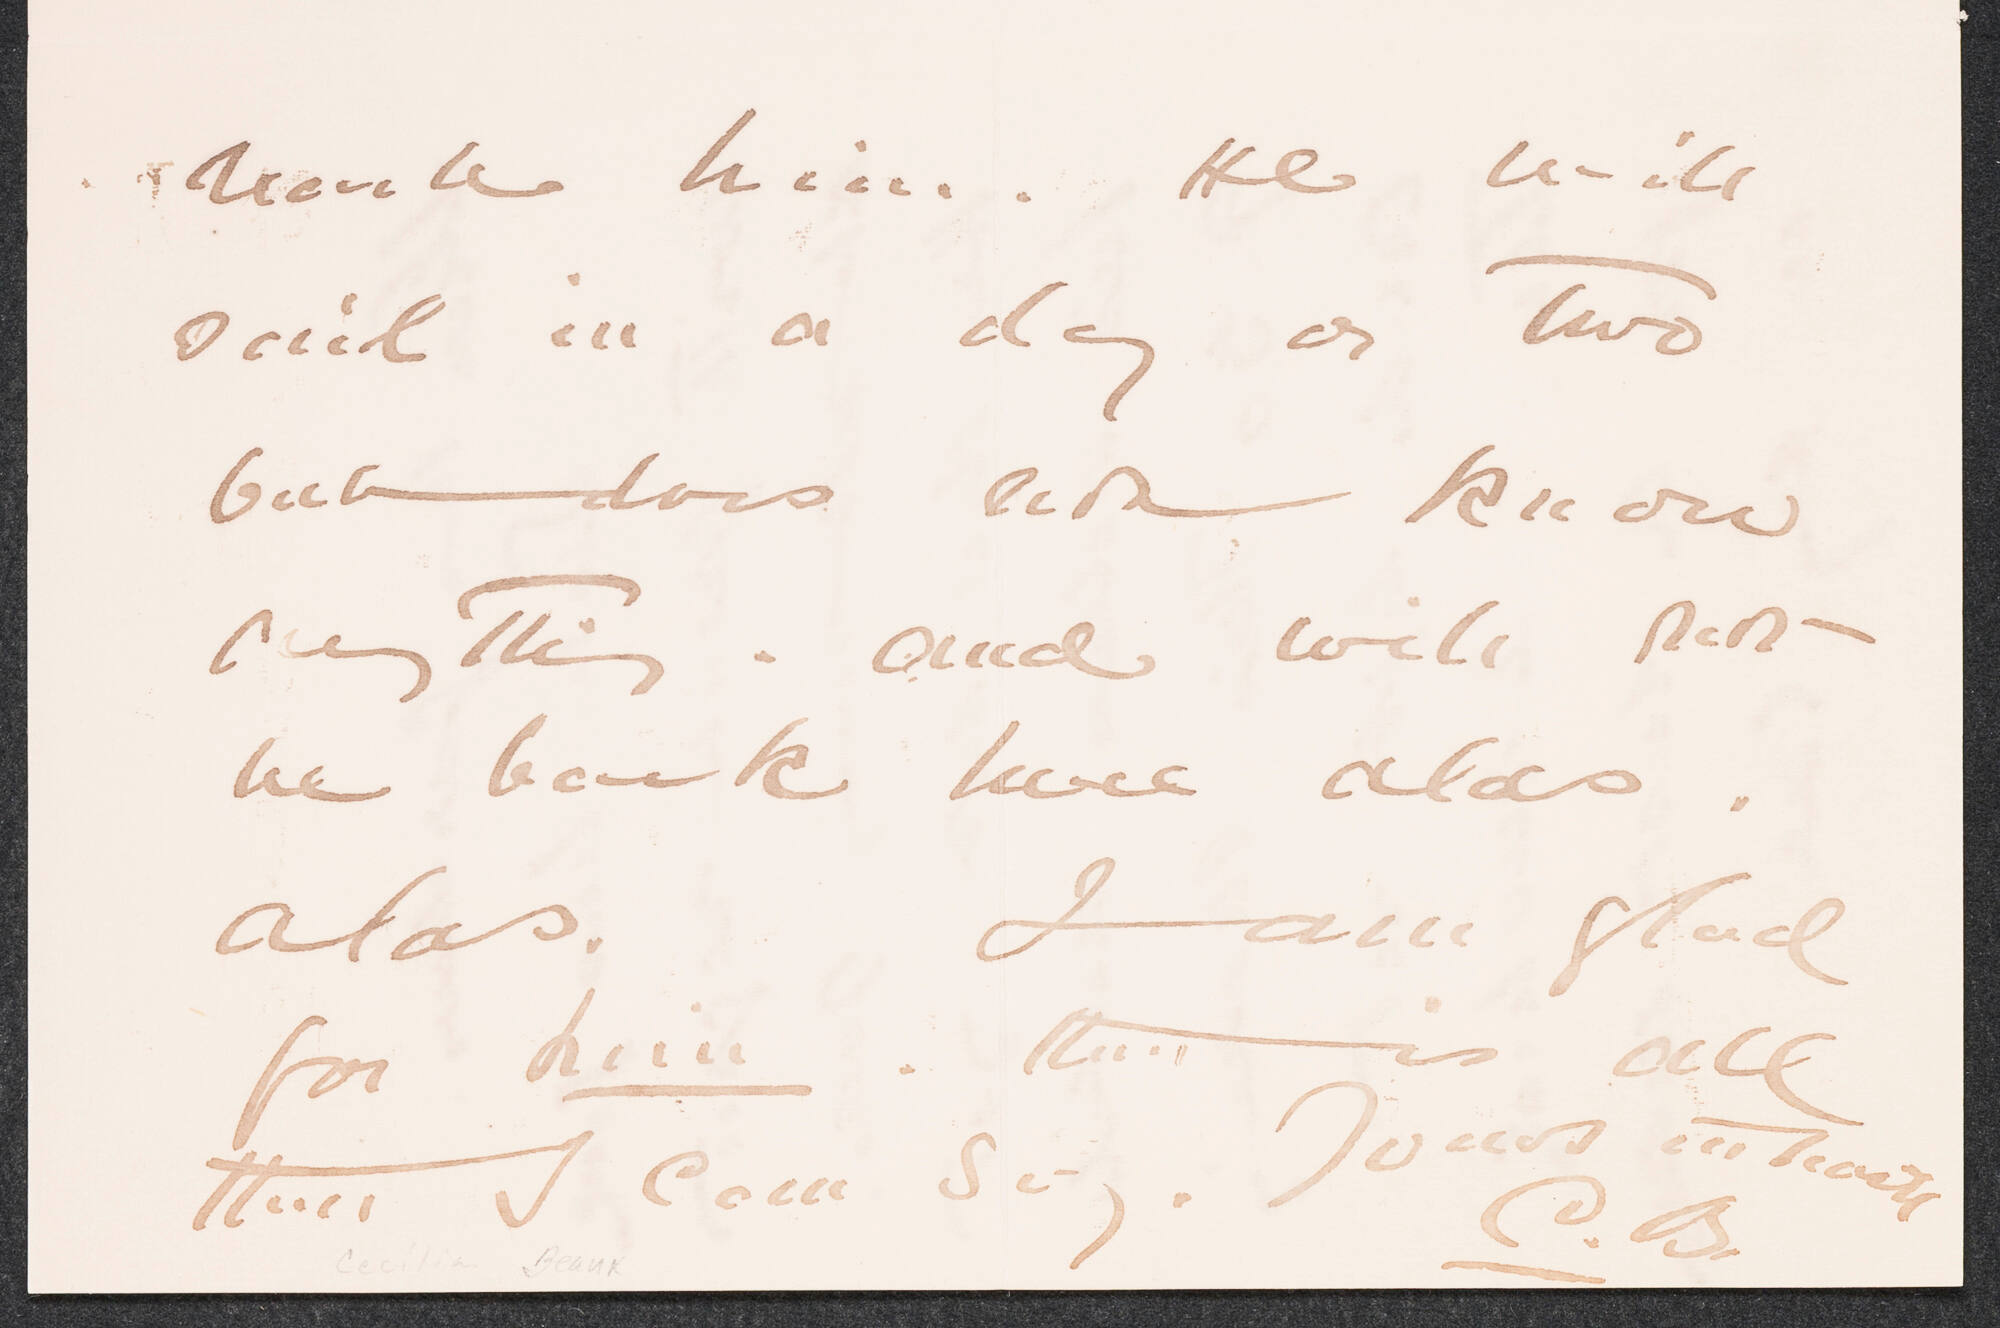 him. He will
sail in a day or two
but does not know
anything. and will not
be back here alas.
alas. I am glad
for him. that is all
that I can say. Yours in haste
C.B.
Cecilia Beaux